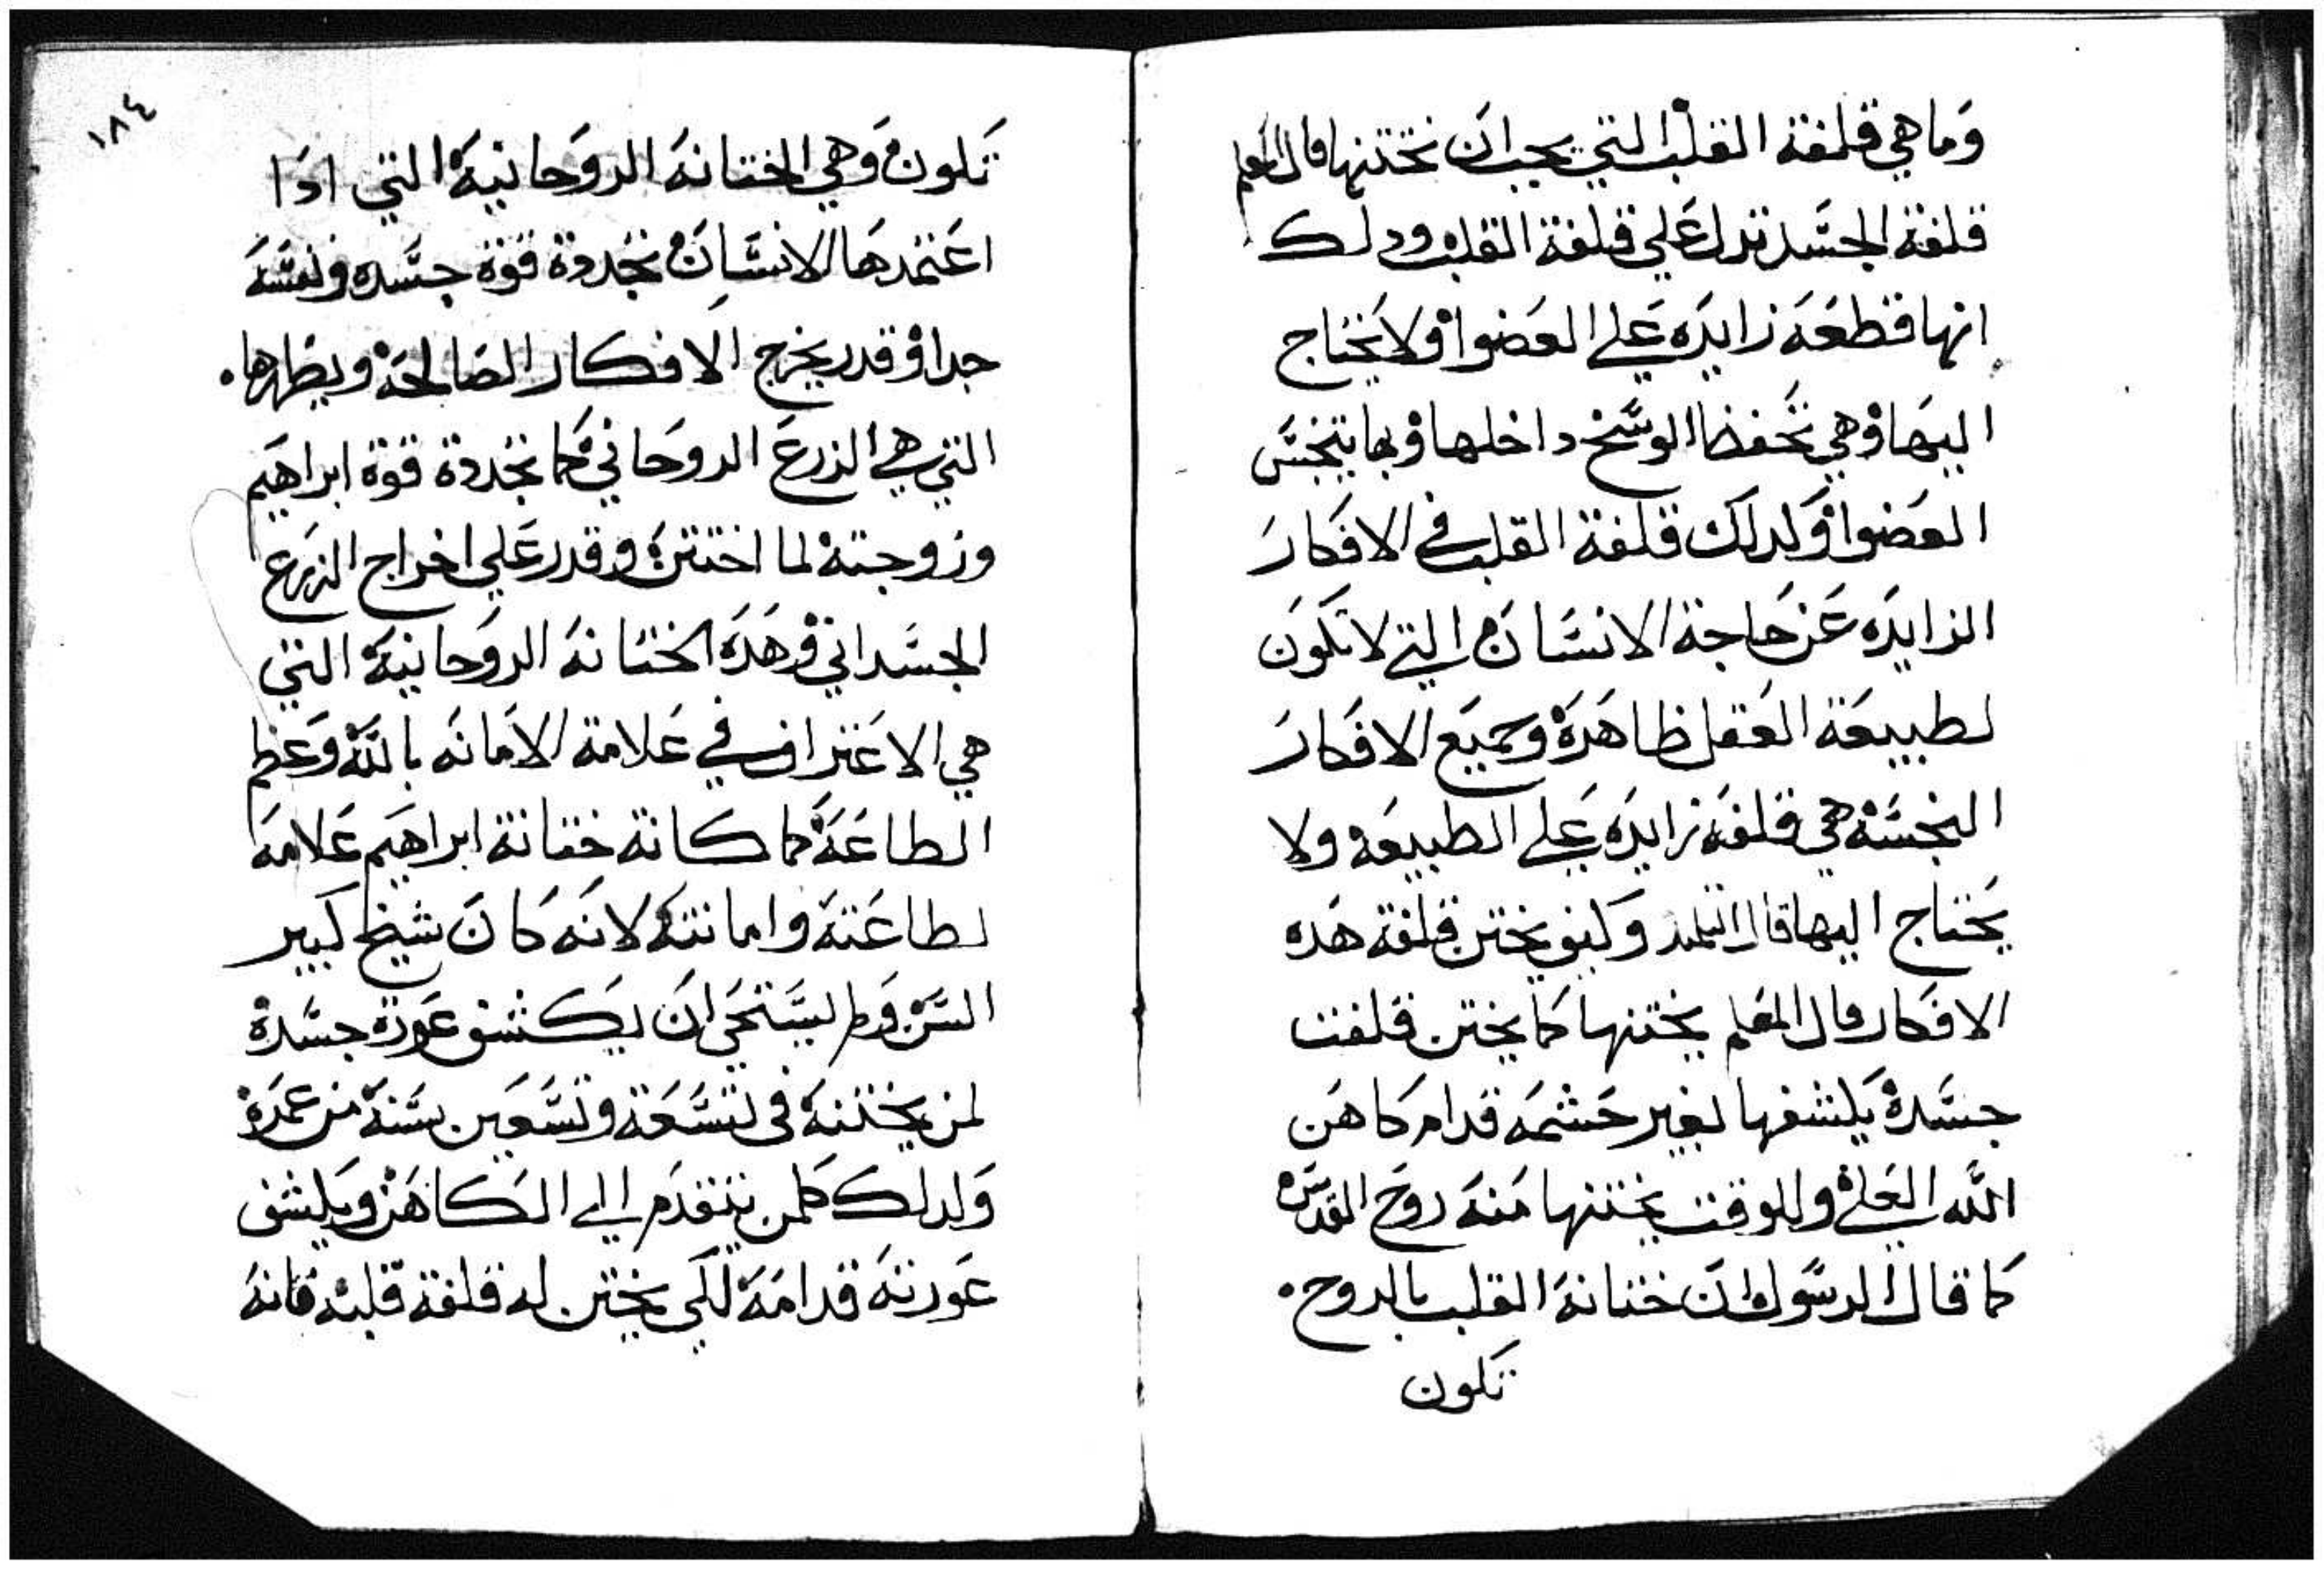 وما هي قلفة القلب التي يجب ان نختنها قال المعلم
قلفة الجسد تدل علي قلفة القلب ودلك
انها قطعه زايده علي العضوا ولا يحتاج
اليها وهي تحفظ الوسخ داخلها وبها يتنجس
العضوا ولدلك قلفة القلب في الافكار
الزايده عن حاجة الانسان التي لا تكون
لطبيعة العقل ظاهره وجميع الافكار
النجسه هي قلفه زايده علي الطبيعه ولا
يحتاج اليها قال التلميد وكيف يختن قلفة هده
الافكار قال المعلم يختنها كما يختن قلفت
جسده يكشفها بغير حشمه قدام كاهن
الله العلي وللوقت يختنها منه روح القدس
كما قال الرسول ان ختانة القلب بالروح.
تكون
١٨٤
تكون وهي الختانه الروحانيه التي ادا
اعتمدها الانسان تجددة قوة جسده ونفسه
جدا وقدر يخرج الافكار الصالحه ويظهرها.
التي هي الزرع الروحاني كما تجددة قوة ابراهيم
وزوجته لما اختتن وقدر علي اخراج الزرع
الجسداني وهده الختانه الروحانيه التي
هي الاعتراف في علامة الامانه بالله وعظم
الطاعه كما كانة ختانة ابراهيم علامه
لطاعته وامانته لانه كان شيخ كبير
السن ولم يستحي ان يكشف عورة جسده
لمن يختنه في تسعة وتسعين سنه من عمره
ولدلك كلمن يتقدم الي الكاهن ويكشف
عورته قدامه لكي يختن له قلفة قلبه فانه